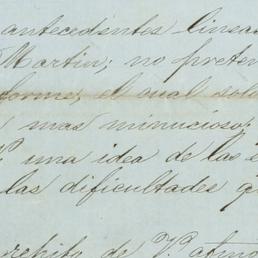 antecedentes linea
Martin; no preten
forme, el cual solo
mas minucioso
una idea de las e
las dificultades q
de V. atmo